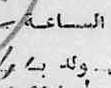 الساعة -
ولد بـ